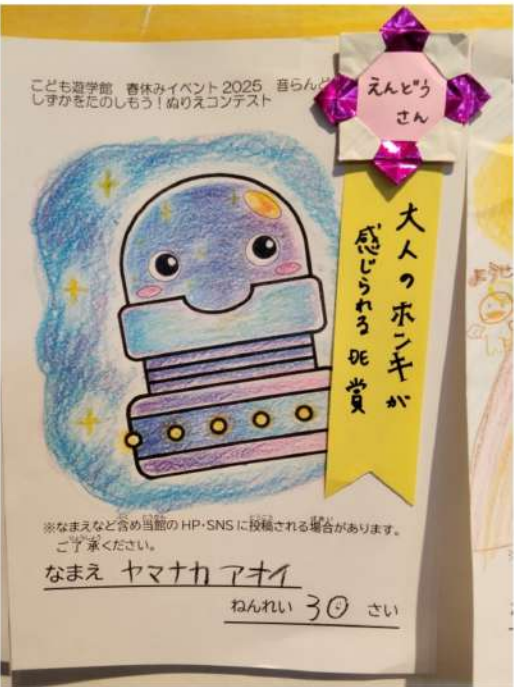 こども遊学館 春休みイベント2025 音らんど
しずかをたのしもう！ぬりえコンテスト
えんどう
さん
大人のホンキが
感じられるDE賞
※なまえなど含め当館のHP・SNSに投稿される場合があります。
ご了承ください。
なまえ ヤマナカ アオイ
ねんれい 30 さい